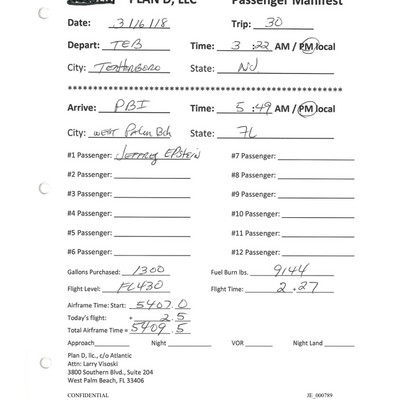 PLAN D, LLC Passenger Manifest
Date: 3/16/18 Trip: 30
Depart: TEB Time: 3:22 AM / PM local
City: Teterboro State: NJ
Arrive: PBI Time: 5:49 AM / PM local
City: West Palm Bch State: FL
#1 Passenger: Jeffrey Epstein #7 Passenger:
#2 Passenger: #8 Passenger:
#3 Passenger: #9 Passenger:
#4 Passenger: #10 Passenger:
#5 Passenger: #11 Passenger:
#6 Passenger: #12 Passenger:
Gallons Purchased: 1300 Fuel Burn lbs. 9144
Flight Level: FL430 Flight Time: 2.27
Airframe Time: Start: 5407.0
Today's flight: + 2.5
Total Airframe Time = 5409.5
Approach Night VOR Night Land
Plan D, llc., c/o Atlantic
Attn: Larry Visoski
3800 Southern Blvd., Suite 204
West Palm Beach, FL 33406
CONFIDENTIAL JE_000789